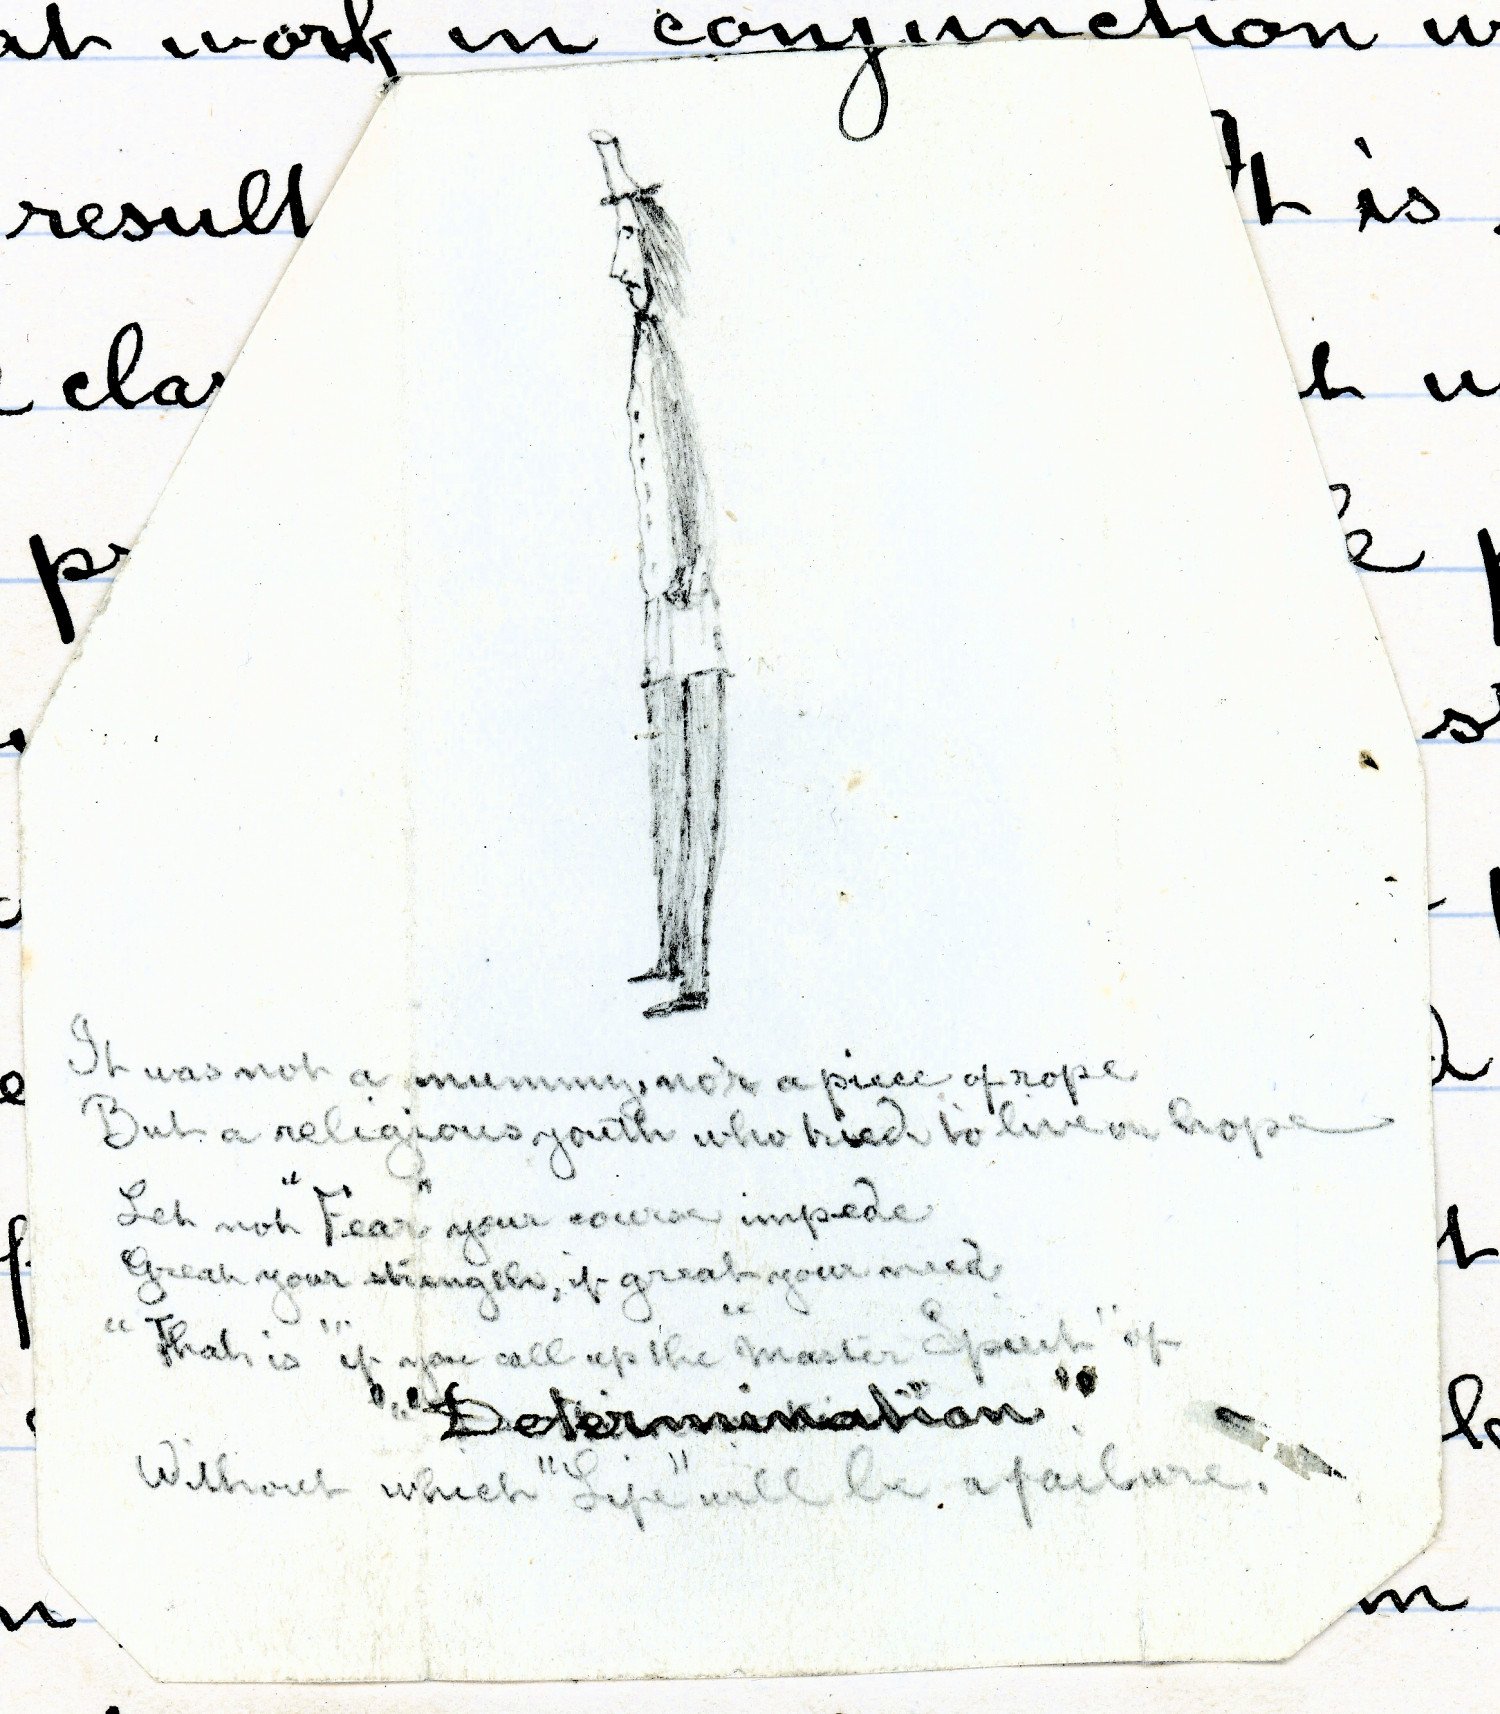 at work in conjunction
result
t is
cla
t
p
e p
s
It was not a mummy, nor a piece of rope
But a religious youth who tried to live on hope
Let not "Fear" your course impede
Great your strength, if great your need
"That is" "if you call up the "Master Spirit" of
""Determination"."
Without which "Life" will be a failure.